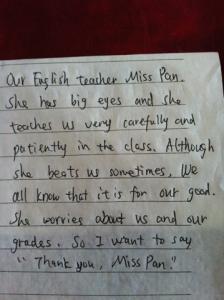 Our English teacher Miss Pan.
She has big eyes and she
teaches us very carefully and
patiently in the class. Although
she beats us sometimes, We
all know that it is for our good.
She worries about us and our
grades. So I want to say
"Thank you, Miss Pan."